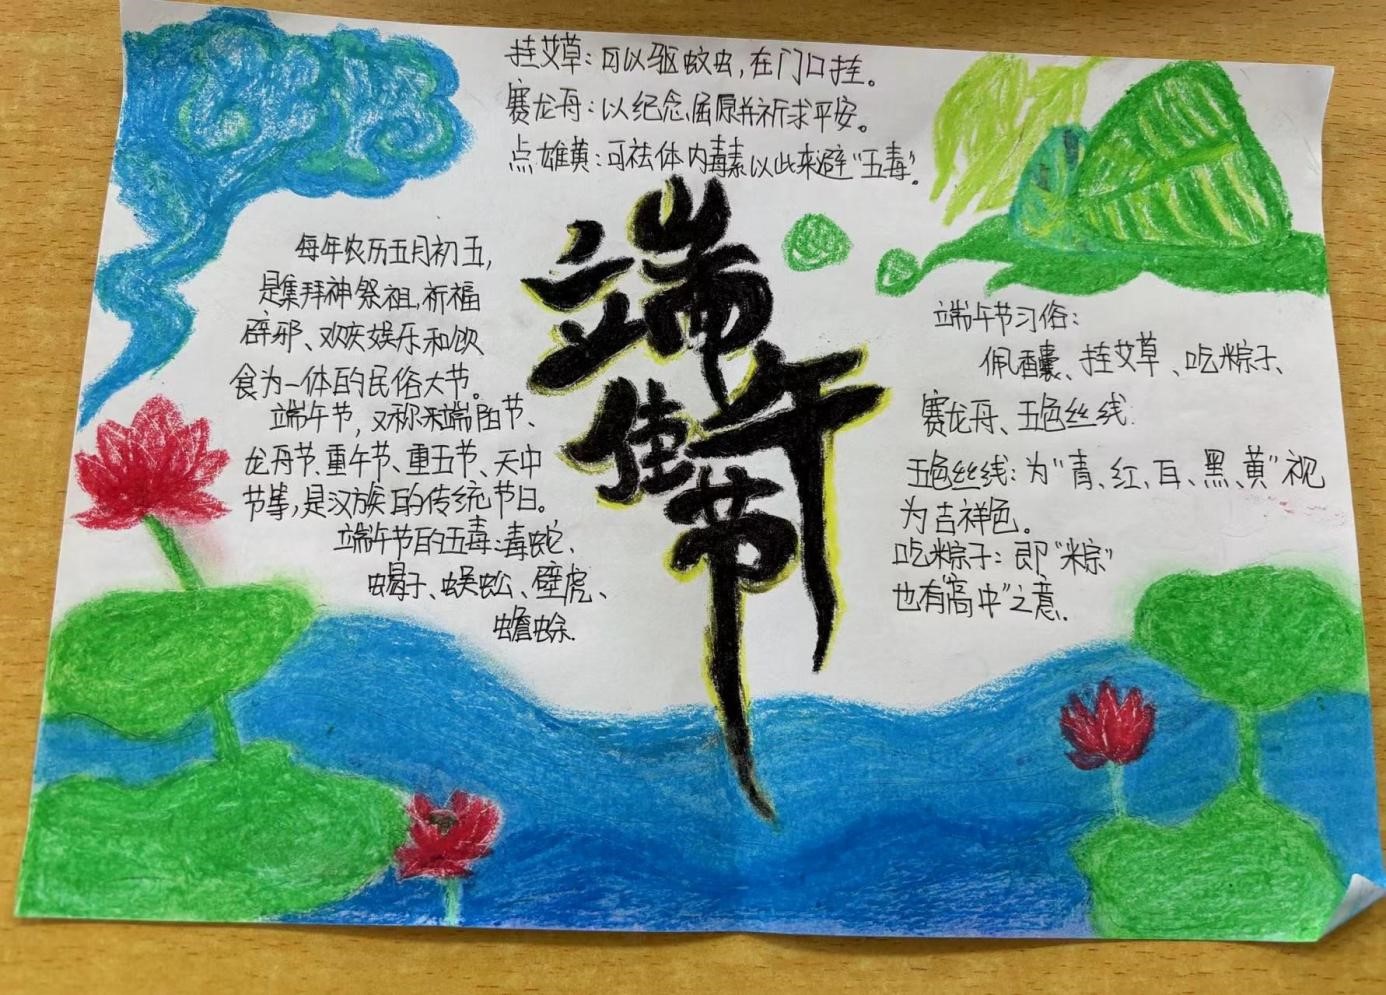 挂艾草：可以驱蚊虫，在门口挂。
赛龙舟：以纪念屈原并祈求平安。
点雄黄：可祛体内毒素以此来避“五毒”.
端午
佳节
每年农历五月初五，
是集拜神祭祖，祈福
辟邪、欢庆娱乐和饮
食为一体的民俗大节。
端午节，又称来端阳节、
龙舟节、重午节、重五节、天中
节等，是汉族的传统节日。
端午节的五毒：毒蛇、
蝎子、蜈蚣、壁虎、
蟾蜍.
端午节习俗：
佩香囊、挂艾草、吃粽子、
赛龙舟、五色丝线.
五色丝线：为“青、红、白、黑、黄”视
为吉祥色。
吃粽子：即“粽”
也有“高中”之意.